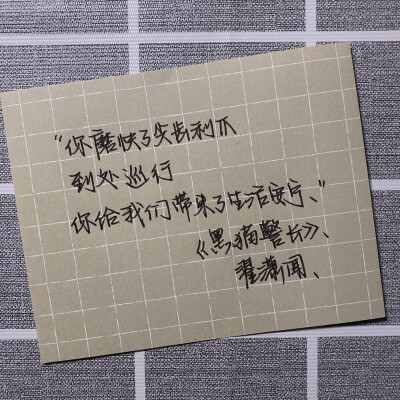 “你磨快了尖齿利爪
到处巡行
你给我们带来了生活安宁、”
《黑猫警长》、
翟潇闻、